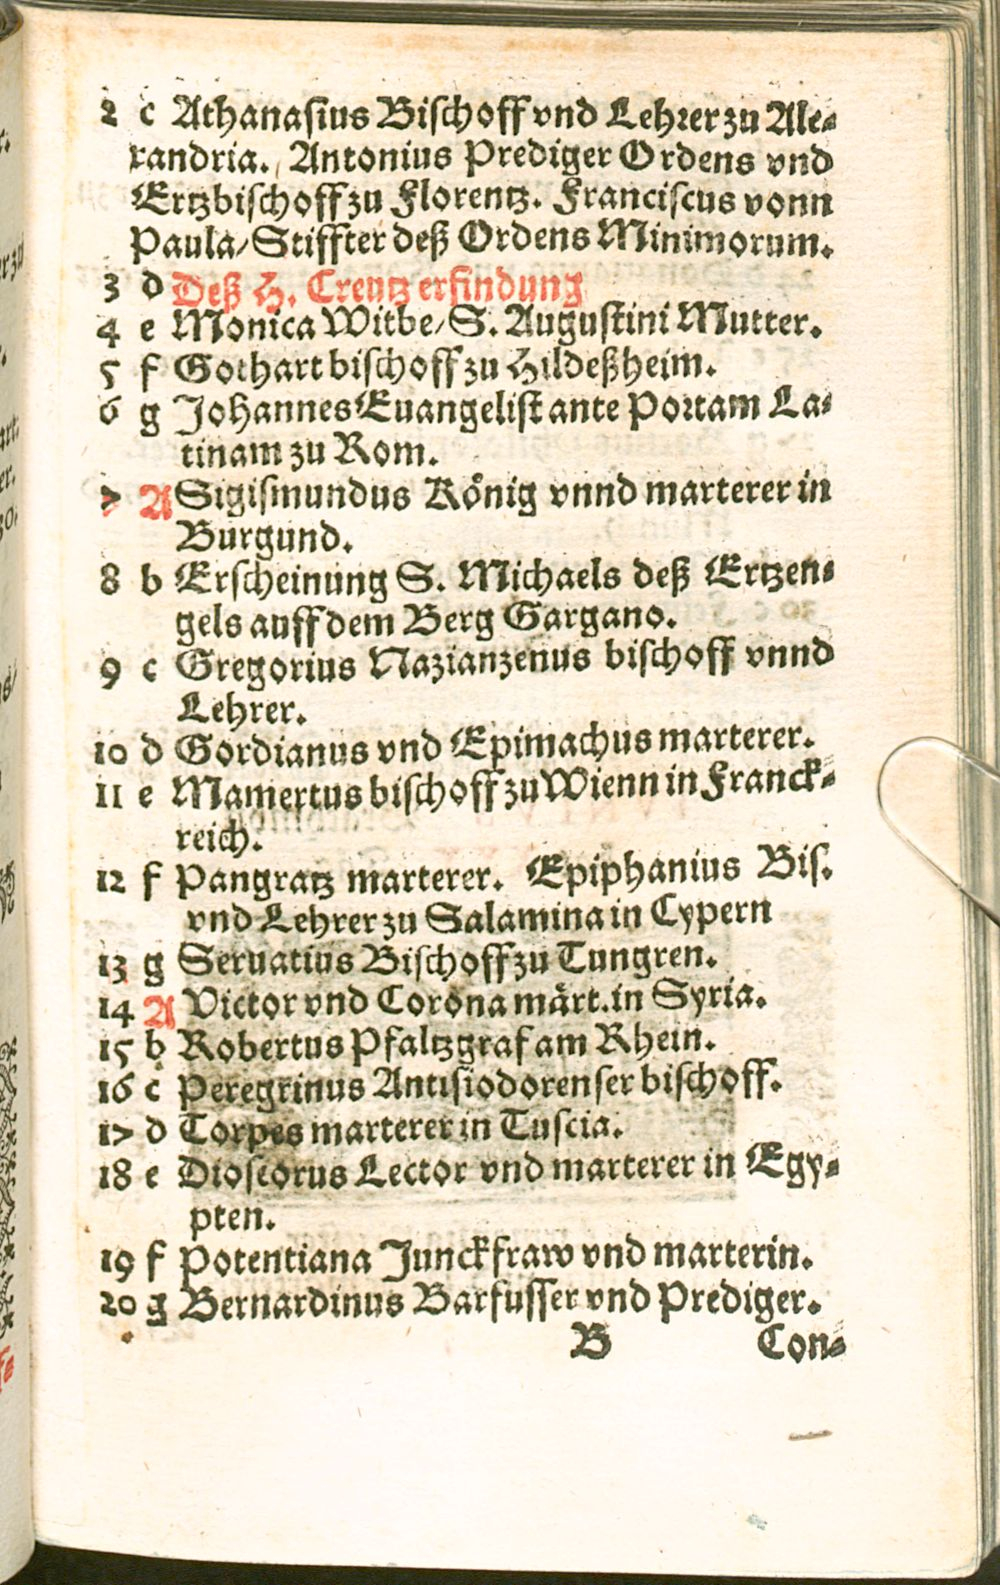 2 c Athanasius Bischoff vnd Lehrer zu Ale-
xandria. Antonius Prediger Ordens vnd
Ertzbischoff zu Florentz. Franciscus vonn
Paula/ Stiffter deß Ordens Minimorum.
3 d Deß H. Creutz erfindung
4 e Monica Witbe/ S. Augustini Mutter.
5 f Gothart bischoff zu Hildeßheim.
6 g Johannes Euangelist ante Portam La-
tinam zu Rom.
7 A Sigismundus König vnnd marterer in
Burgund.
8 b Erscheinung S. Michaels deß Ertzen-
gels auff dem Berg Gargano.
9 c Gregorius Nazianzenus bischoff vnnd
Lehrer.
10 d Gordianus vnd Epimachus marterer.
11 e Mamertus bischoff zu Wienn in Franck-
reich.
12 f Pangratz marterer. Epiphanius Bis.
vnd Lehrer zu Salamina in Cypern
13 g Seruatius Bischoff zu Tungren.
14 A Victor vnd Corona märt. in Syria.
15 b Robertus Pfaltzgraf am Rhein.
16 c Peregrinus Antisiodorenser bischoff.
17 d Torpes marterer in Tuscia.
18 e Dioscorus Lector vnd marterer in Egy-
pten.
19 f Potentiana Junckfraw vnd marterin.
20 g Bernardinus Barfusser vnd Prediger.
B Con-